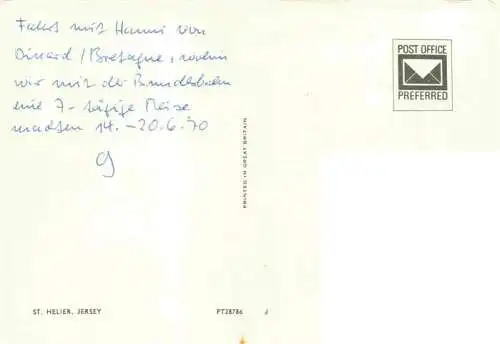 Fahrt mit Hanni von
Dinard / Bretagne, wohin
wir mit der Bundesbahn
eine 7-tägige Reise
machten 14.-20.6.70
g
POST OFFICE
PREFERRED
PRINTED IN GREAT BRITAIN
ST. HELIER, JERSEY
PT28786 J